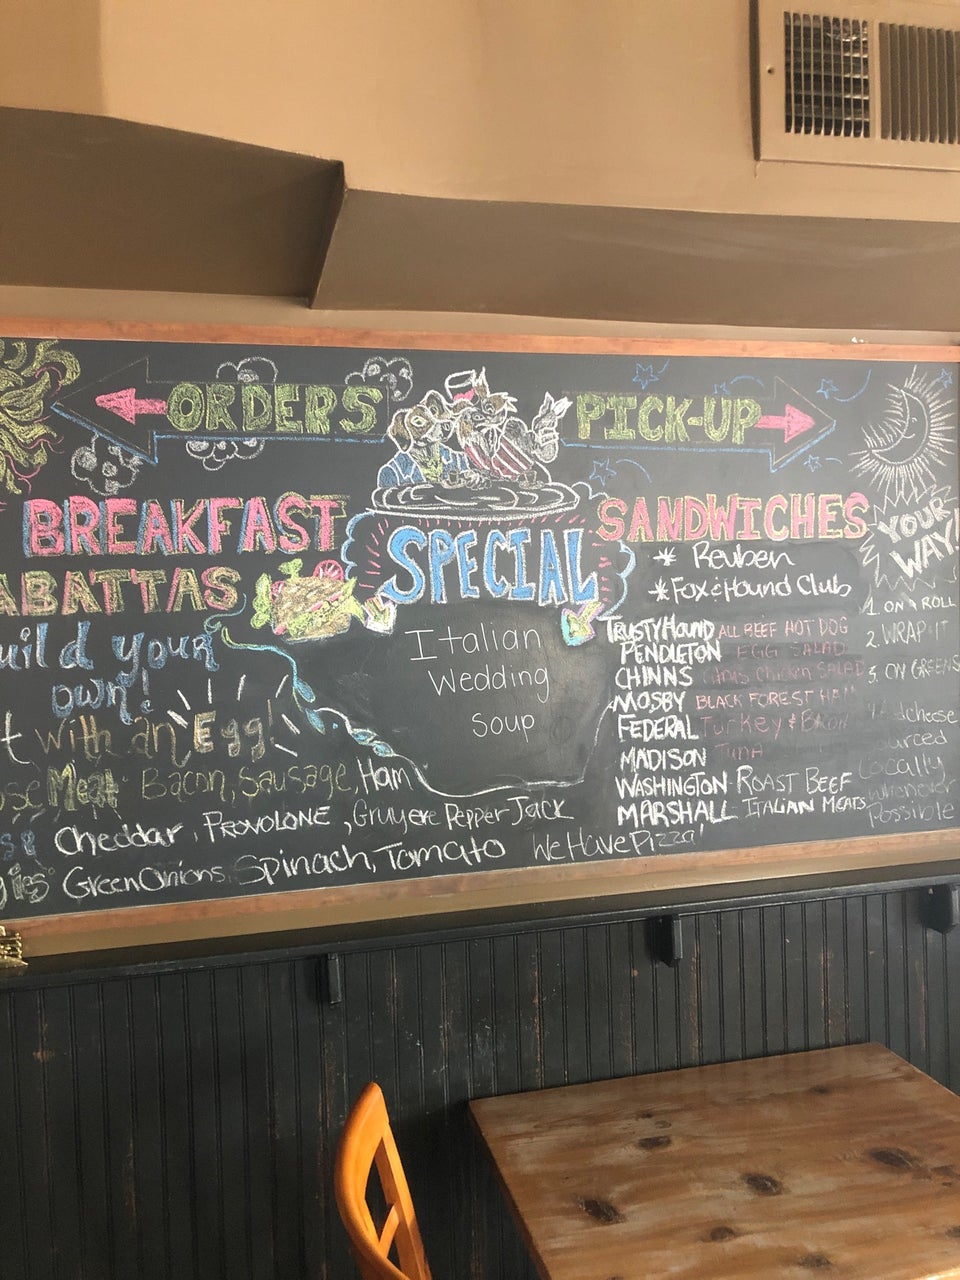 ORDERS
PICK-UP
BREAKFAST
ABATTAS
uild your
own!
t with an Egg!
ose Meat Bacon, Sausage, Ham
Cheddar, PROVOLONE, Gruyere Pepper Jack
gies Green Onions, Spinach, Tomato
We Have Pizza!
SPECIAL
Italian
Wedding
Soup
SANDWICHES
* Reuben
* Fox & Hound Club
TRUSTY HOUND ALL BEEF HOT DOG
PENDLETON EGG SALAD
CHINNS Chicken SALAD
MOSBY BLACK FOREST HAM
FEDERAL Turkey & Bacon
MADISON TUNA
WASHINGTON ROAST BEEF
MARSHALL ITALIAN MEATS
YOUR
WAY!
1. ON A ROLL
2. WRAP IT
3. ON GREENS
sourced
Locally
whenever
Possible